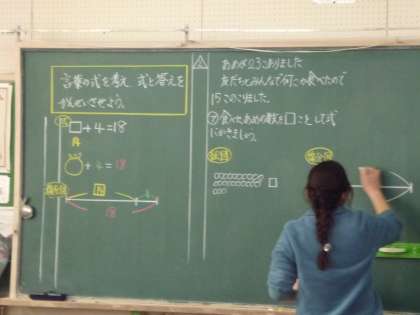 言葉の式を考え 式と答えを
かんせいさせよう。
□+4=18
+4=18
14
4
18
あめが23こありました
友だちとみんなで何こか食べたので
15このこりました。
㋐食べたあめの数を□ことして式
にかきましょう。